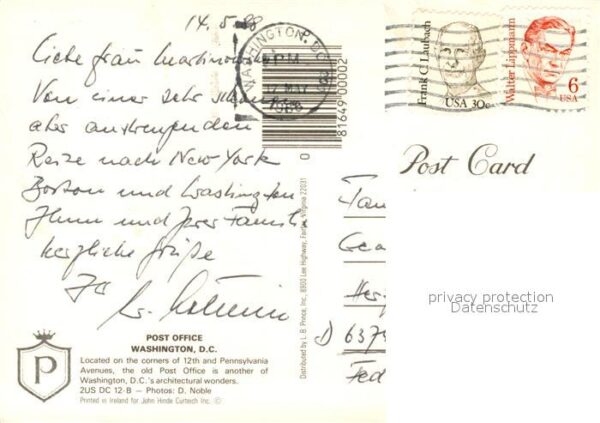 14.5.88
Liebe Frau
Von einer sehr schönen
aber anstrengenden
Reise nach New York
Boston und Washington
Ihnen und Ihrer Familie
herzliche Grüße
Ihr
WASHINGTON, DC
PM
17 MAY
1988
81649 00002
0
Frank C. Laubach
USA 30c
Walter Lippmann
6c
USA
Post Card
D 6374
privacy protection
Datenschutz
Distributed by L. B. Prince, Inc., 8800 Lee Highway, Fairfax, Virginia 22031
P
POST OFFICE
WASHINGTON, D.C.
Located on the corners of 12th and Pennsylvania
Avenues, the old Post Office is another of
Washington, D.C.'s architectural wonders.
2US DC 12-B – Photos: D. Noble
Printed in Ireland for John Hinde Curteich Inc. ©